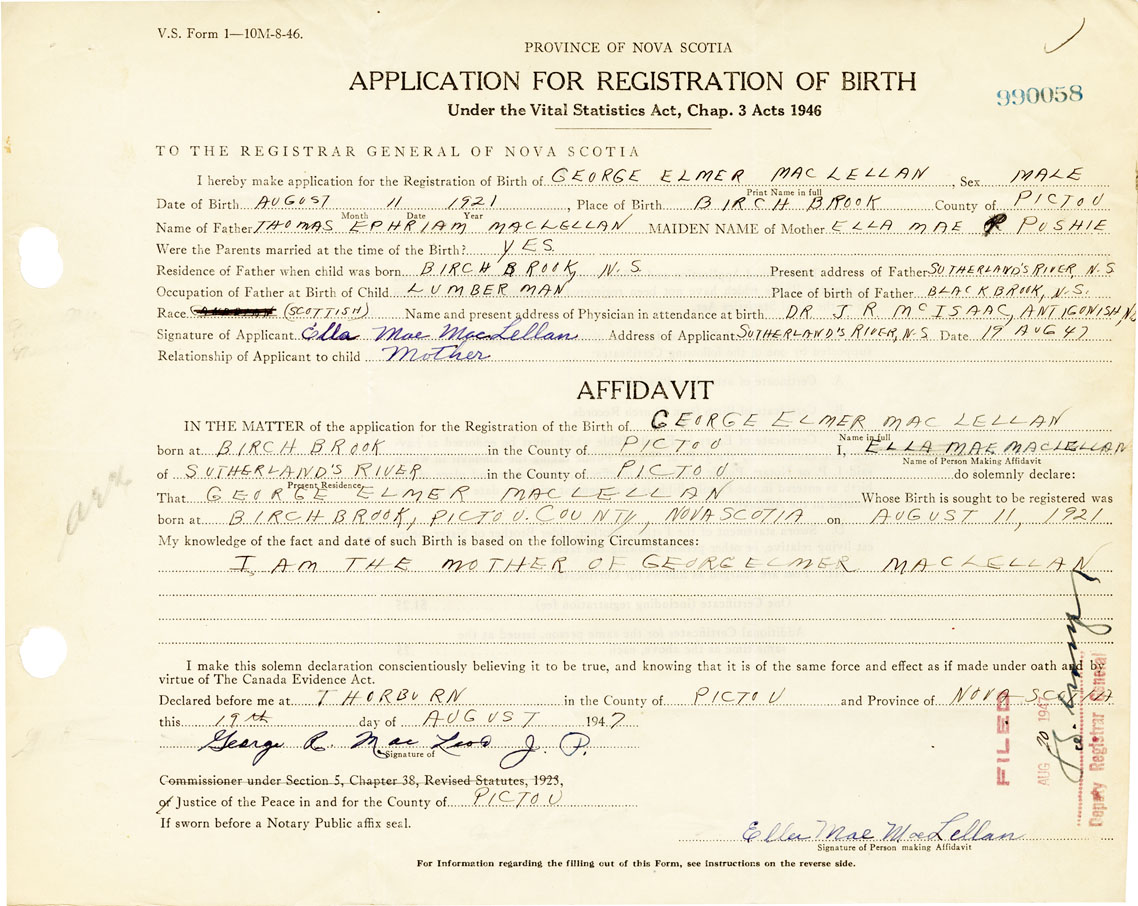 V.S. Form 1—10M-8-46.
PROVINCE OF NOVA SCOTIA
APPLICATION FOR REGISTRATION OF BIRTH
990058
Under the Vital Statistics Act, Chap. 3 Acts 1946
TO THE REGISTRAR GENERAL OF NOVA SCOTIA
I hereby make application for the Registration of Birth of GEORGE ELMER MACLELLAN, Sex MALE
Print Name in full
Date of Birth AUGUST 11 1921, Place of Birth BIRCH BROOK County of PICTOU
Month Date Year
Name of Father THOMAS EPHRIAM MACLELLAN MAIDEN NAME of Mother ELLA MAE PUSHIE
Were the Parents married at the time of the Birth? YES
Residence of Father when child was born BIRCH BROOK, N.S. Present address of Father SUTHERLAND'S RIVER, N.S.
Occupation of Father at Birth of Child LUMBERMAN Place of birth of Father BLACKBROOK, N.S.
Race (SCOTTISH) Name and present address of Physician in attendance at birth DR J R MCISAAC, ANTIGONISH, NS
Signature of Applicant Ella Mae MacLellan Address of Applicant SUTHERLAND'S RIVER, N.S Date 19 AUG 47
Relationship of Applicant to child Mother
AFFIDAVIT
IN THE MATTER of the application for the Registration of the Birth of GEORGE ELMER MACLELLAN
Name in full
born at BIRCH BROOK in the County of PICTOU I, ELLA MAE MACLELLAN
Name of Person Making Affidavit
of SUTHERLAND'S RIVER in the County of PICTOU do solemnly declare:
Present Residence
That GEORGE ELMER MACLELLAN Whose Birth is sought to be registered was
born at BIRCH BROOK, PICTOU COUNTY, NOVA SCOTIA on AUGUST 11, 1921
My knowledge of the fact and date of such Birth is based on the following Circumstances:
I AM THE MOTHER OF GEORGELMER MACLELLAN
I make this solemn declaration conscientiously believing it to be true, and knowing that it is of the same force and effect as if made under oath and by
virtue of The Canada Evidence Act.
Declared before me at THORBURN in the County of PICTOU and Province of NOVA SCOTIA
this 19th day of AUGUST 1947
George R. MacLeod J. P.
Signature of
Commissioner under Section 5, Chapter 38, Revised Statutes, 1923,
or Justice of the Peace in and for the County of PICTOU
If sworn before a Notary Public affix seal.
FILED
AUG 20 1947
Deputy Registrar General
Ella Mae MacLellan
Signature of Person making Affidavit
For Information regarding the filling out of this Form, see instructions on the reverse side.